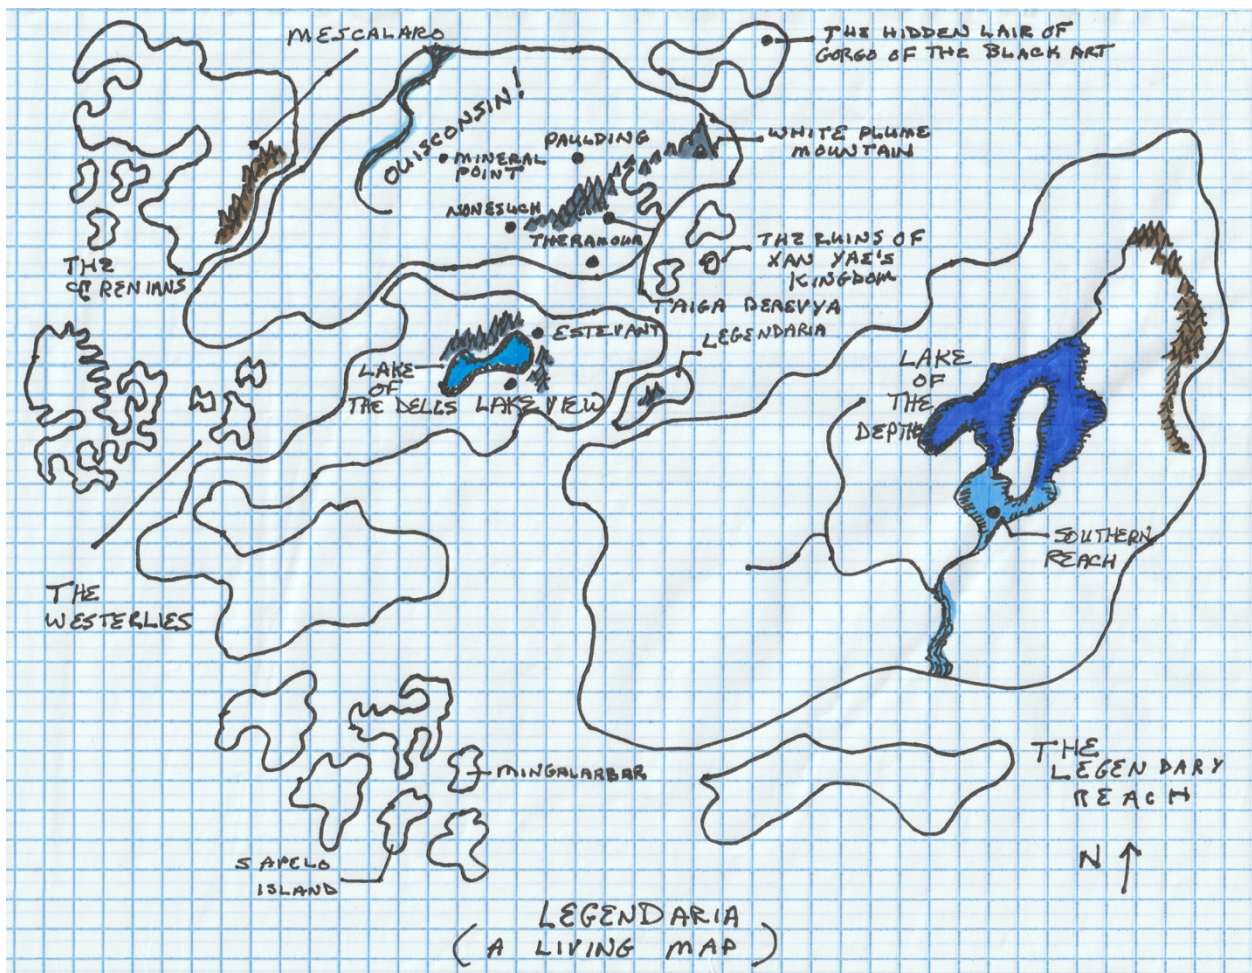 MESCALARO
THE HIDDEN LAIR OF
GORGO OF THE BLACK ART
OUISCONSIN!
PAULDING
WHITE PLUME
MOUNTAIN
MINERAL
POINT
NONESUCH
THERAMOUR
THE RUINS OF
XAN YAE'S
KINGDOM
THE
TAIGA DEREVYA
ESTEVANT
LEGENDARIA
LAKE
OF
THE DELLS
LAKE VIEW
LAKE
OF
THE
DEPTHS
SOUTHERN
REACH
THE
WESTERLIES
MINGALARBAR
SAPELO
ISLAND
THE
LEGENDARY
REACH
N
LEGENDARIA
(A LIVING MAP)